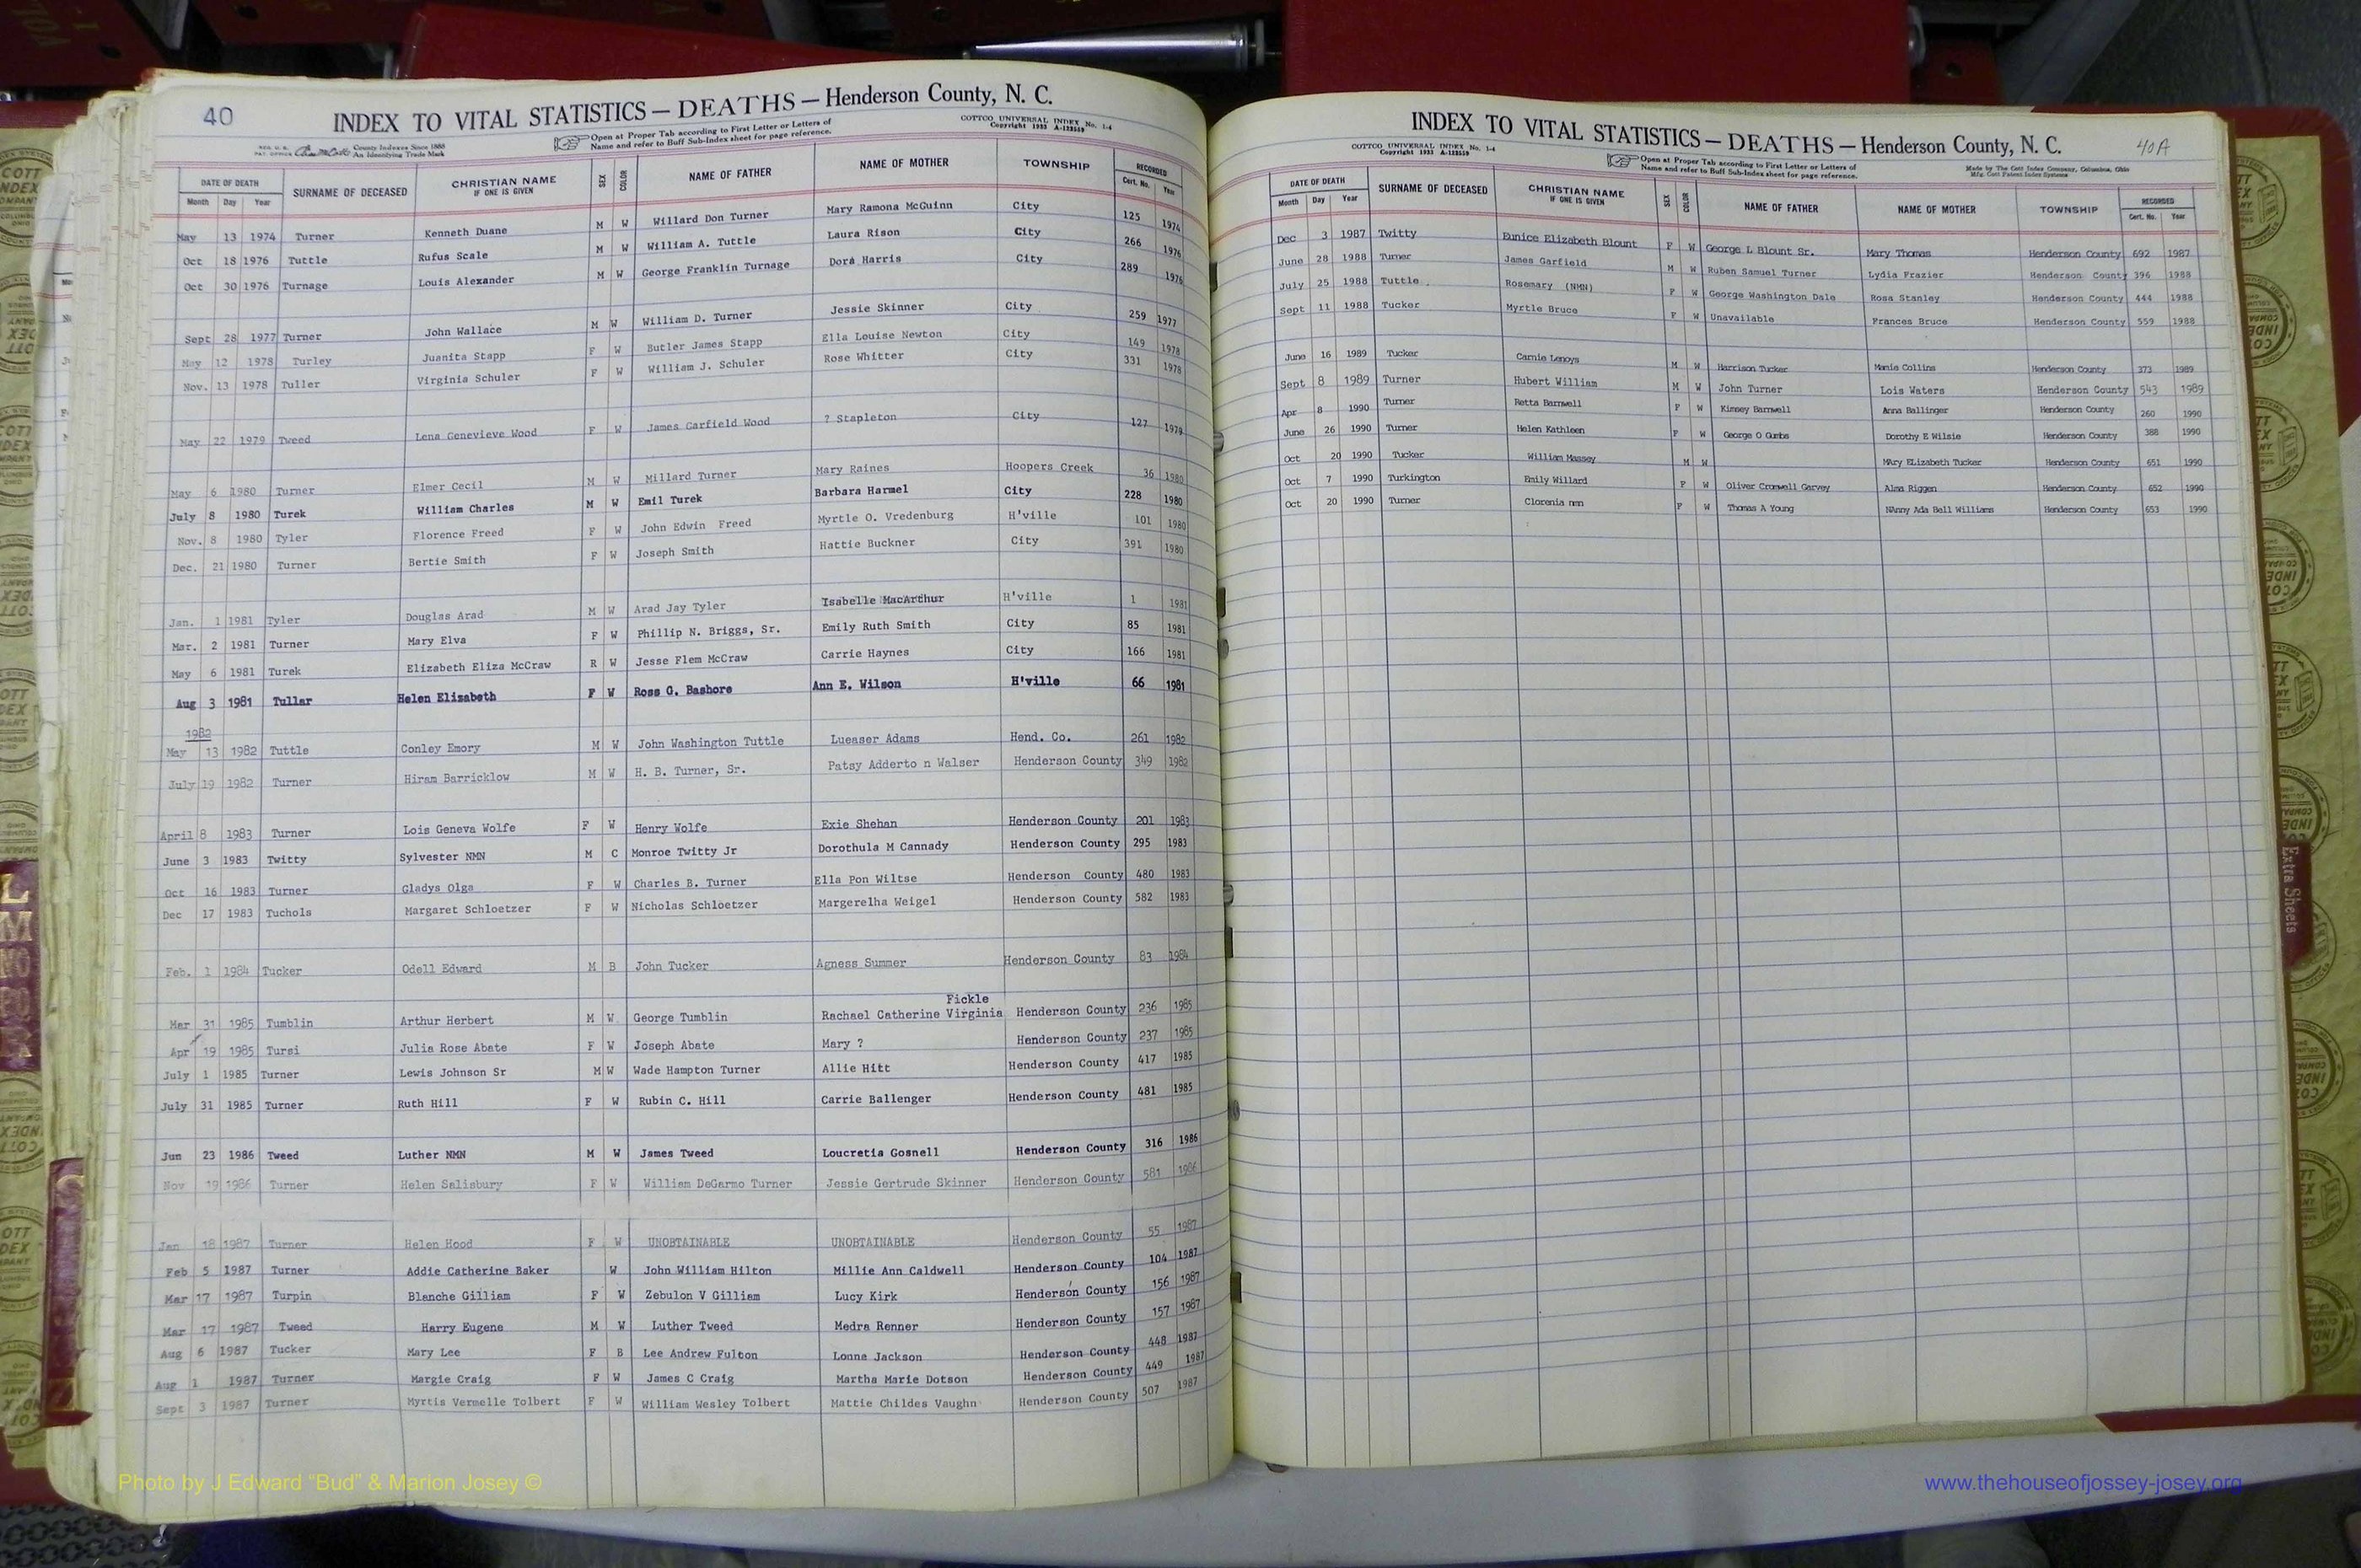 40
INDEX TO VITAL STATISTICS — DEATHS — Henderson County, N. C.
County Indexes Since 1888
An Identifying Trade Mark
Open at Proper Tab according to First Letter or Letters of
Name and refer to Buff Sub-Index sheet for page reference.
COTTCO UNIVERSAL INDEX No. 1-4
Copyright 1933 A-122559
DATE OF DEATH SURNAME OF DECEASED CHRISTIAN NAME IF ONE IS GIVEN SEX COLOR NAME OF FATHER NAME OF MOTHER TOWNSHIP RECORDED
Month Day Year Cert. No. Year
May 13 1974 Turner Kenneth Duane M W Willard Don Turner Mary Ramona McGuinn City 125 1974
Oct 18 1976 Tuttle Rufus Scale M W William A. Tuttle Laura Rison City 266 1976
Oct 30 1976 Turnage Louis Alexander M W George Franklin Turnage Dora Harris City 289 1976
Sept 28 1977 Turner John Wallace M W William D. Turner Jessie Skinner City 259 1977
May 12 1978 Turley Juanita Stapp F W Butler James Stapp Ella Louise Newton City 149 1978
Nov. 13 1978 Tuller Virginia Schuler F W William J. Schuler Rose Whitter City 331 1978
May 22 1979 Tweed Lena Genevieve Wood F W James Garfield Wood ? Stapleton City 127 1979
May 6 1980 Turner Elmer Cecil M W Millard Turner Mary Raines Hoopers Creek 36 1980
July 8 1980 Turek William Charles M W Emil Turek Barbara Harmel City 228 1980
Nov. 8 1980 Tyler Florence Freed F W John Edwin Freed Myrtle O. Vredenburg H'ville 101 1980
Dec. 21 1980 Turner Bertie Smith F W Joseph Smith Hattie Buckner City 391 1980
Jan. 1 1981 Tyler Douglas Arad M W Arad Jay Tyler Isabelle MacArthur H'ville 1 1981
Mar. 2 1981 Turner Mary Elva F W Phillip N. Briggs, Sr. Emily Ruth Smith City 85 1981
May 6 1981 Turek Elizabeth Eliza McCraw R W Jesse Flem McCraw Carrie Haynes City 166 1981
Aug 3 1981 Tullar Helen Elizabeth F W Ross G. Bashore Ann E. Wilson H'ville 66 1981
1982
May 13 1982 Tuttle Conley Emory M W John Washington Tuttle Lueaser Adams Hend. Co. 261 1982
July 19 1982 Turner Hiram Barricklow M W H. B. Turner, Sr. Patsy Adderto n Walser Henderson County 349 1982
April 8 1983 Turner Lois Geneva Wolfe F W Henry Wolfe Exie Shehan Henderson County 201 1983
June 3 1983 Twitty Sylvester NMN M C Monroe Twitty Jr Dorothula M Cannady Henderson County 295 1983
Oct 16 1983 Turner Gladys Olga F W Charles B. Turner Ella Pon Wiltse Henderson County 480 1983
Dec 17 1983 Tuchols Margaret Schloetzer F W Nicholas Schloetzer Margerelha Weigel Henderson County 582 1983
Feb. 1 1984 Tucker Odell Edward M B John Tucker Agness Summer Henderson County 83 1984
Fickle
Mar 31 1985 Tumblin Arthur Herbert M W George Tumblin Rachael Catherine Virginia Henderson County 236 1985
Apr 19 1985 Tursi Julia Rose Abate F W Joseph Abate Mary ? Henderson County 237 1985
July 1 1985 Turner Lewis Johnson Sr M W Wade Hampton Turner Allie Hitt Henderson County 417 1985
July 31 1985 Turner Ruth Hill F W Rubin C. Hill Carrie Ballenger Henderson County 481 1985
Jun 23 1986 Tweed Luther NMN M W James Tweed Loucretia Gosnell Henderson County 316 1986
Nov 19 1986 Turner Helen Salisbury F W William DeGarmo Turner Jessie Gertrude Skinner Henderson County 581 1986
Jan 18 1987 Turner Helen Hood F W UNOBTAINABLE UNOBTAINABLE Henderson County 55 1987
Feb 5 1987 Turner Addie Catherine Baker W John William Hilton Millie Ann Caldwell Henderson County 104 1987
Mar 17 1987 Turpin Blanche Gilliam F W Zebulon V Gilliam Lucy Kirk Henderson County 156 1987
Mar 17 1987 Tweed Harry Eugene M W Luther Tweed Medra Renner Henderson County 157 1987
Aug 6 1987 Tucker Mary Lee F B Lee Andrew Fulton Lonne Jackson Henderson County 448 1987
Aug 1 1987 Turner Margie Craig F W James C Craig Martha Marie Dotson Henderson County 449 1987
Sept 3 1987 Turner Myrtis Vermelle Tolbert F W William Wesley Tolbert Mattie Childes Vaughn Henderson County 507 1987
INDEX TO VITAL STATISTICS — DEATHS — Henderson County, N. C.
40A
COTTCO UNIVERSAL INDEX No. 1-4
Copyright 1933 A-122559
Open at Proper Tab according to First Letter or Letters of
Name and refer to Buff Sub-Index sheet for page reference.
Made by The Cott Index Company, Columbus, Ohio
Mfg. Cott Patent Index Systems
DATE OF DEATH SURNAME OF DECEASED CHRISTIAN NAME IF ONE IS GIVEN SEX COLOR NAME OF FATHER NAME OF MOTHER TOWNSHIP RECORDED
Month Day Year Cert. No. Year
Dec 3 1987 Twitty Eunice Elizabeth Blount F W George L Blount Sr. Mary Thomas Henderson County 692 1987
June 28 1988 Turner James Garfield M W Ruben Samuel Turner Lydia Frazier Henderson County 396 1988
July 25 1988 Tuttle Rosemary (NMN) F W George Washington Dale Rosa Stanley Henderson County 444 1988
Sept 11 1988 Tucker Myrtle Bruce F W Unavailable Frances Bruce Henderson County 559 1988
June 16 1989 Tucker Carnie Lenoys M W Harrison Tucker Mamie Collins Henderson County 373 1989
Sept 8 1989 Turner Hubert William M W John Turner Lois Waters Henderson County 543 1989
Apr 8 1990 Turner Retta Barnwell F W Kimsey Barnwell Anna Ballinger Henderson County 260 1990
June 26 1990 Turner Helen Kathleen F W George O Gumbs Dorothy E Wilsie Henderson County 388 1990
Oct 20 1990 Tucker William Massey M W MAry ELizabeth Tucker Henderson County 651 1990
Oct 7 1990 Turkington Emily Willard F W Oliver Cromwell Garvey Alma Riggen Henderson County 652 1990
Oct 20 1990 Turner Clorenia nmn F W Thomas A Young NAnny Ada Bell Williams Henderson County 653 1990
Extra Sheets
Photo by J Edward “Bud” & Marion Josey ©
www.thehouseofjossey-josey.org